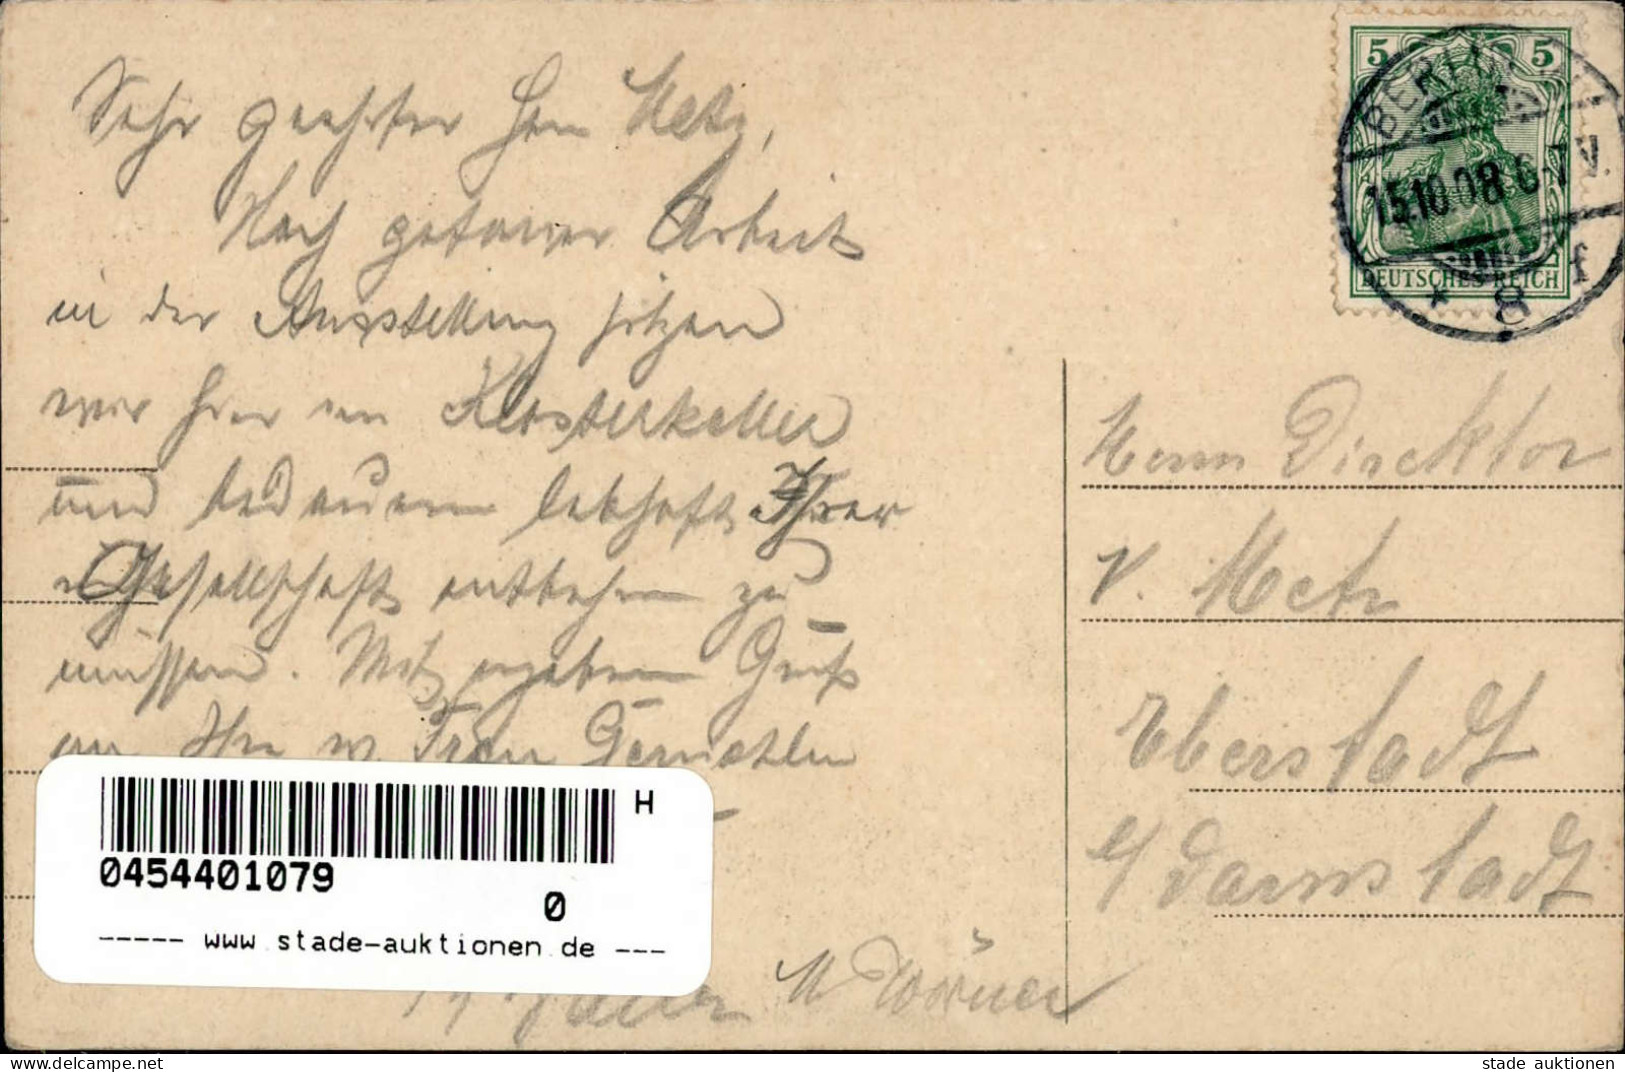 Sehr geehrter Herr Metz,
Nach getaner Arbeit
in der Ausstellung sitzen
wir hier im Klosterkeller
und bedauern lebhaft Ihrer
Gesellschaft entbehren zu
müssen. Mit ergebenem Gruß
an Ihre w. Frau Gemahlin
M Wörner
H
0454401079
0
----- www.stade-auktionen.de ---
5 5
DEUTSCHES REICH
BERLIN
15.10.08.6-7V.
* 8 f
Herrn Direktor
v. Metz
Eberstadt
b/Darmstadt
stade auktionen